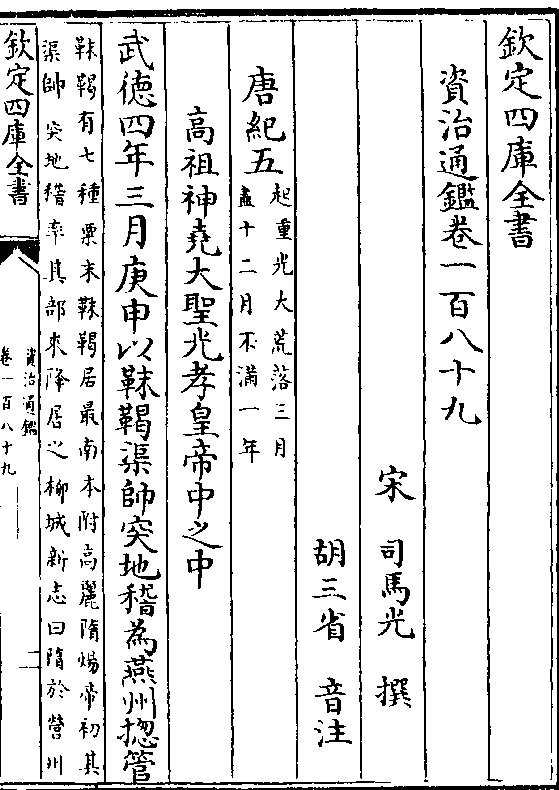 欽定四庫全書
資治通鑑卷一百八十九
宋 司馬光 撰
胡三省 音注
唐紀五
起重光大荒落三月
盡十二月不滿一年
高祖神堯大聖光孝皇帝中之中
武徳四年三月庚申以靺鞨渠帥突地稽為燕州揔管
靺鞨有七種粟末靺鞨居最南本附高麗隋煬帝初其
渠帥突地稽率其部來降居之柳城新志曰隋於營州
欽定四庫全書
資治通鑑
卷一百八十九